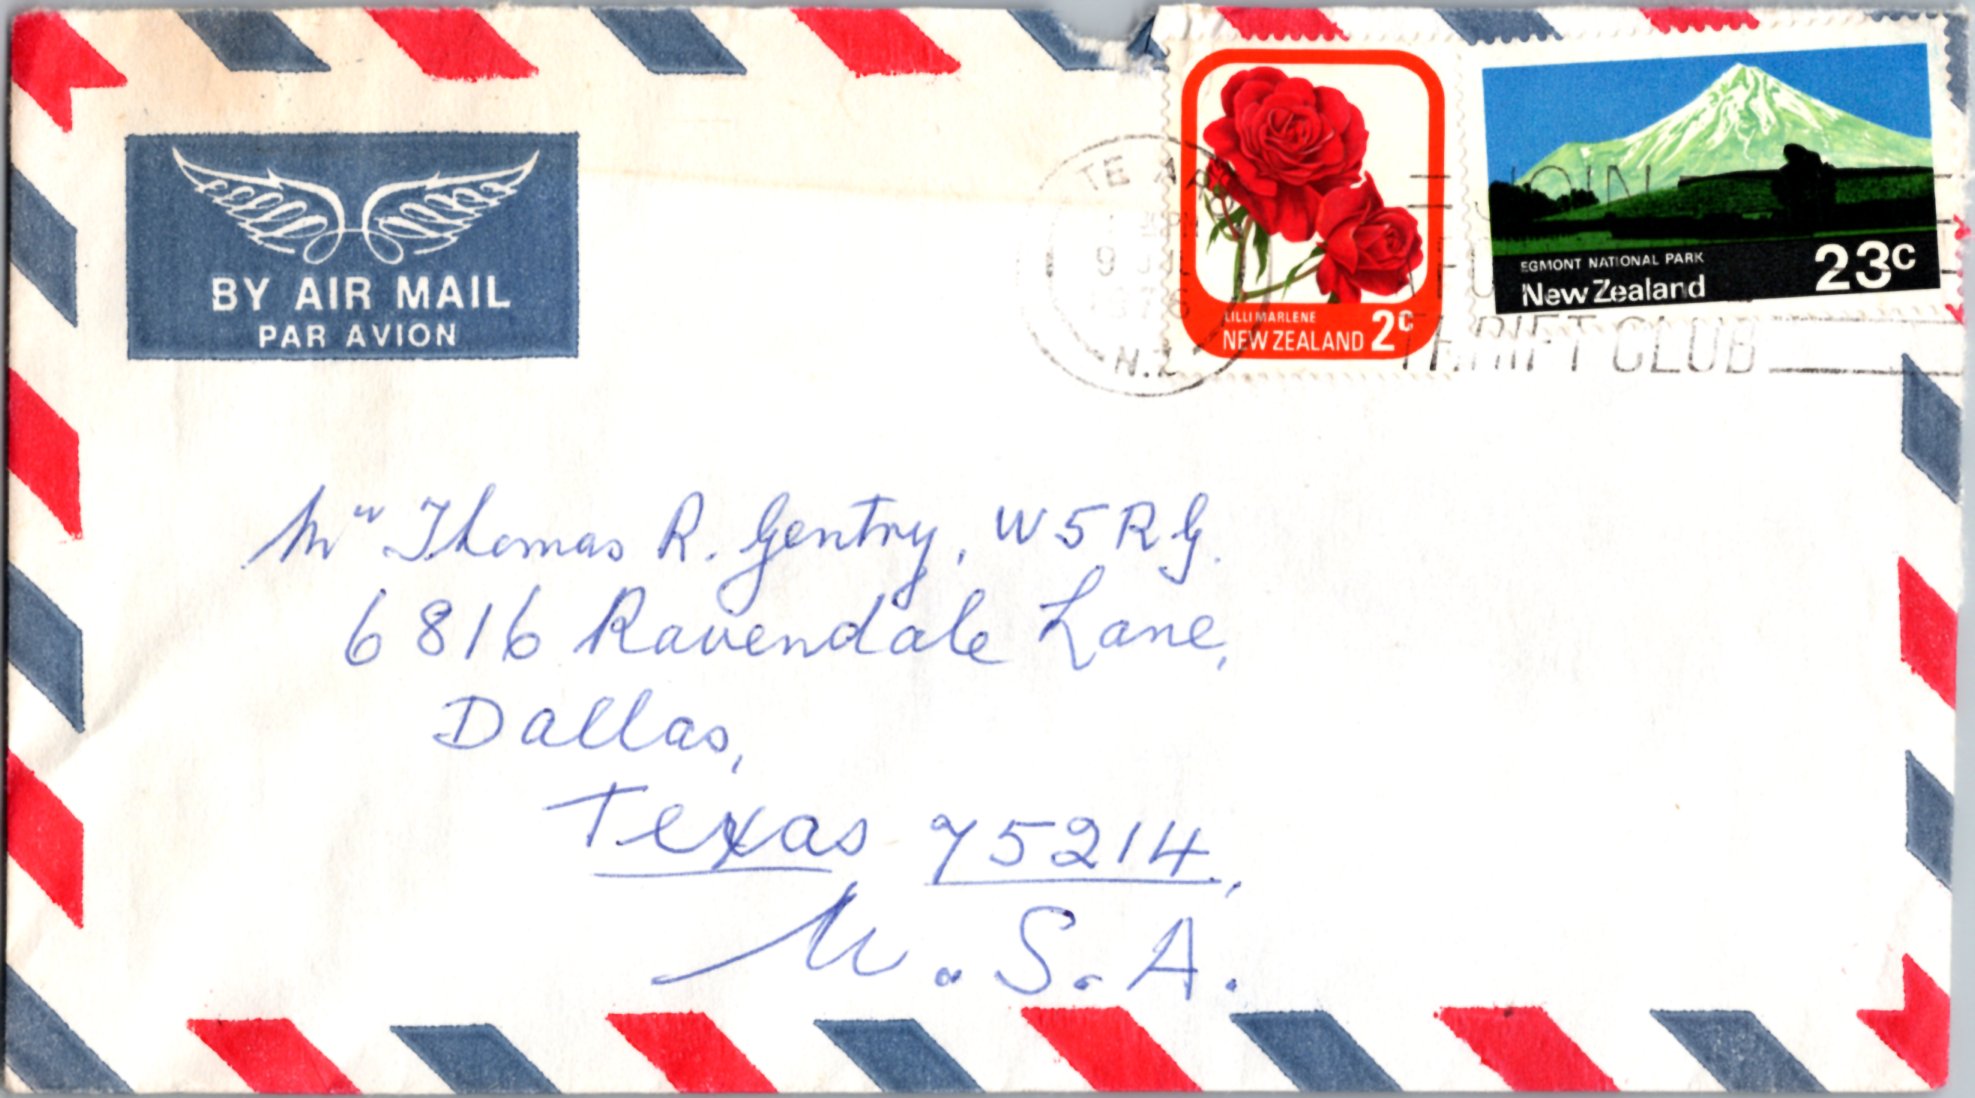 BY AIR MAIL
PAR AVION
TE
9
1976
N.Z.
JOIN
THRIFT CLUB
LILLI MARLENE
NEW ZEALAND 2c
EGMONT NATIONAL PARK
New Zealand 23c
Mr Thomas R. Gentry, W5RG.
6816 Ravendale Lane,
Dallas,
Texas 75214,
U.S.A.